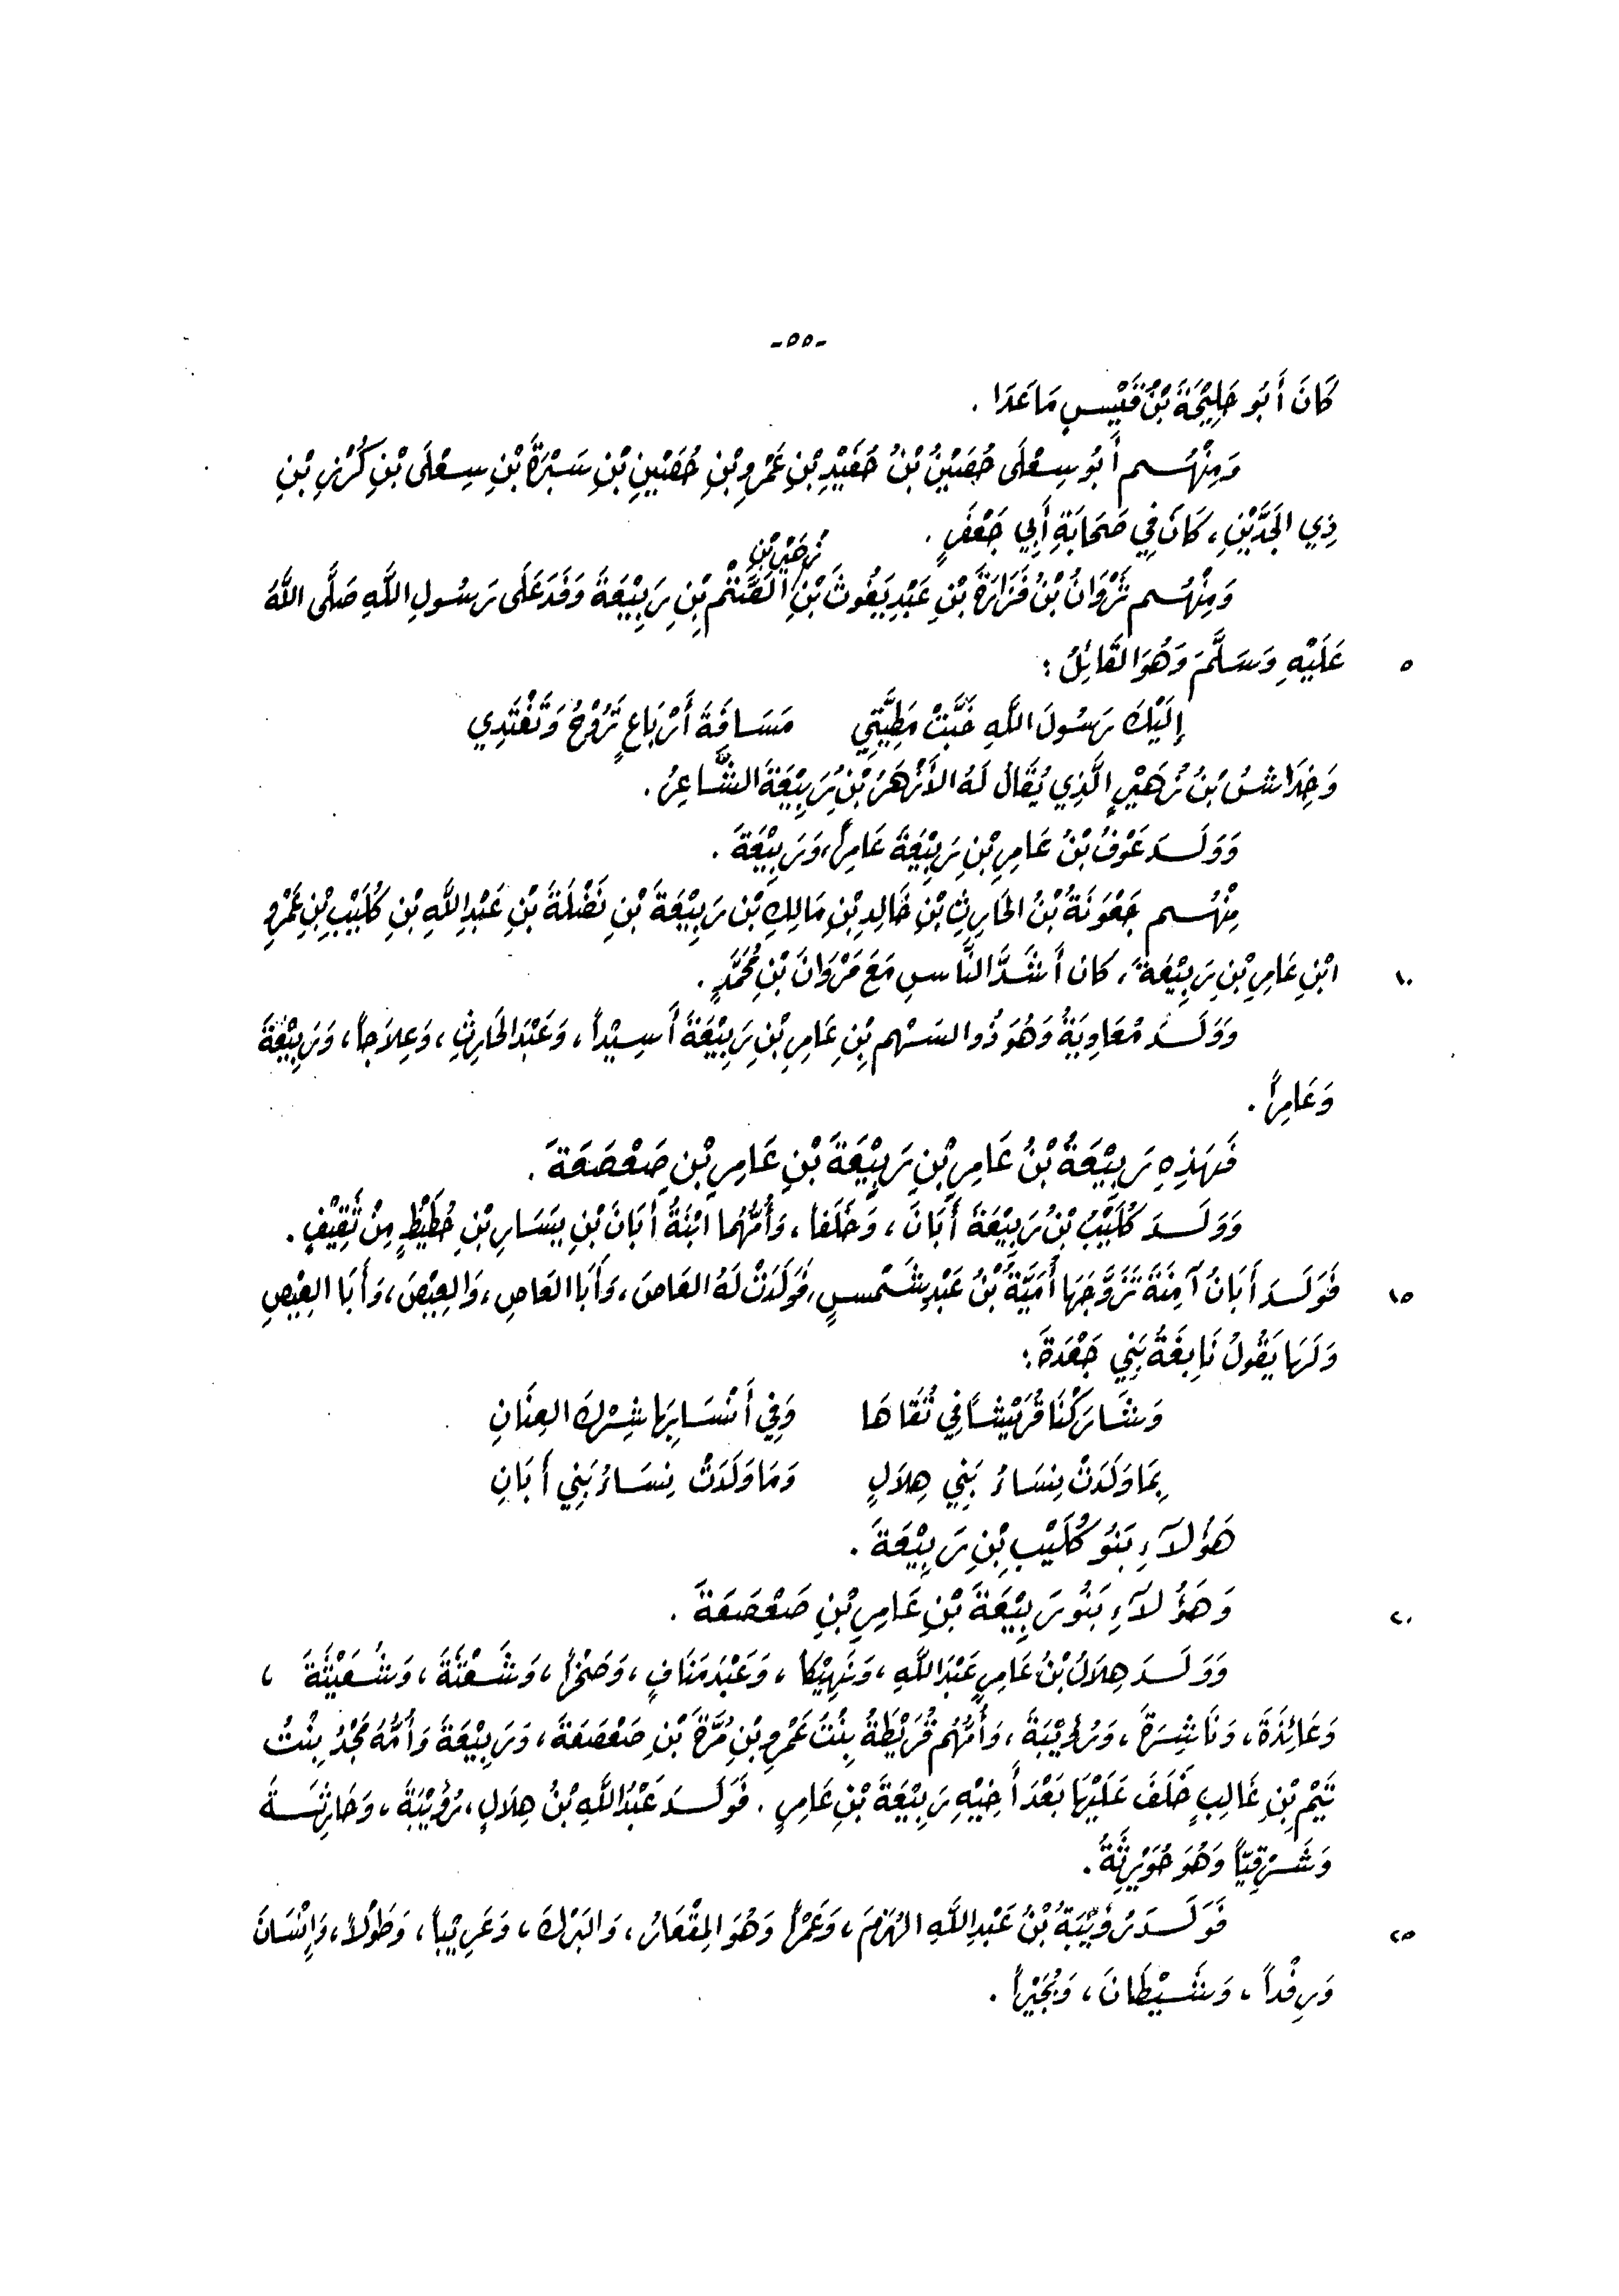 -٥٥-
كَانَ أَبُو حَلِيْمَةَ بْنُ قَيْسٍ مَاعَدَا .
وَمِنْهُم أَبُو سِعْلَى حُصَيْنُ بْنُ حُفَيْدِ بْنِ عَمْرِو بْنِ حُصَيْنِ بْنِ سَبْرَةَ بْنِ سِعْلَى بْنِ كُرْزِ بْنِ
ذِي الجَدَّيْنِ ، كَانَ فِي صَحَابَةِ أَبِي جَعْفَرٍ .
زُهَيْرِ بْنِ
وَمِنْهُم ثَرْوَانُ بْنُ فَزَارَةَ بْنِ عَبْدِ يَغُوثَ بْنِ الصَّتْمِ بْنِ رَبِيْعَةَ وَفَدَ عَلَى رَسُولِ اللَّهِ صَلَّى اللَّهُ
٥ عَلَيْهِ وَسَلَّمَ وَهُوَ القَائِلُ :
إِلَيْكَ رَسُولَ اللَّهِ خَبَّتْ مَطِيَّتِي مَسَافَةَ أَرْبَاعٍ تَرُوْحُ وَتَغْتَدِي
وَخِدَاشُ بْنُ زُهَيْرٍ الَّذِي يُقَالُ لَهُ الأَزْهَرُ بْنُ رَبِيْعَةَ الشَّاعِرُ .
وَوَلَدَ عَوْفُ بْنُ عَامِرِ بْنِ رَبِيْعَةَ عَامِراً، وَرَبِيْعَةَ .
مِنْهُم جَعْوَنَةُ بْنُ الحَارِثِ بْنِ خَالِدِ بْنِ مَالِكِ بْنِ رَبِيْعَةَ بْنِ نَضْلَةَ بْنِ عَبْدِ اللَّهِ بْنِ كُلَيْبِ بْنِ عَمْرِو
١٠ ابْنِ عَامِرِ بْنِ رَبِيْعَةَ ، كَانَ أَشَدَّ النَّاسِ مَعَ مَرْوَانَ بْنِ مُحَمَّدٍ .
وَوَلَدَ مُعَاوِيَةُ وَهُوَ ذُو السَهْمِ بْنِ عَامِرِ بْنِ رَبِيْعَةَ أَسِيْداً ، وَعَبْدَ الحَارِثِ ، وَعِلاَجاً ، وَرَبِيْعَةَ
وَعَامِراً .
فَهَذِهِ رَبِيْعَةُ بْنُ عَامِرِ بْنِ رَبِيْعَةَ بْنِ عَامِرِ بْنِ صَعْصَعَةَ .
وَوَلَدَ كُلَيْبُ بْنُ رَبِيْعَةَ أَبَانَ ، وَخَلَفاً ، وَأُمُّهُما ابْنَةُ أَبَانَ بْنِ يَسَارِ بْنِ حُطَيْطٍ مِنْ ثَقِيْفٍ .
١٥ فَوَلَدَ أَبَانُ آمِنَةَ تَزَوَّجَهَا أُمَيَّةُ بْنُ عَبْدِ شَمْسٍ، فَوَلَدَتْ لَهُ العَاصَ ، وَأَبَا العَاصِ ، وَالعِيْصَ ، وَأَبَا العِيْصِ
وَلَهَا يَقُولُ نَابِغَةُ بَنِي جَعْدَةَ :
وَشَارَكْنَا قُرَيْشاً فِي تُقَاهَا وَفِي أَنْسَابِهَا شِرْكَ العِنَانِ
بِمَا وَلَدَتْ نِسَاءُ بَنِي هِلاَلٍ وَمَا وَلَدَتْ نِسَاءُ بَنِي أَبَانِ
هَؤُلاَءِ بَنُو كُلَيْبِ بْنِ رَبِيْعَةَ .
٢٠ وَهَؤُلاَءِ بَنُو رَبِيْعَةَ بْنِ عَامِرِ بْنِ صَعْصَعَةَ .
وَوَلَدَ هِلاَلُ بْنُ عَامِرٍ عَبْدَ اللَّهِ ، وَنَهِيْكاً ، وَعَبْدَ مَنَافٍ ، وَصَخْراً ، وَشَعْثَةَ ، وَشُعَيْثَةَ ،
وَعَائِذَةَ، وَنَاشِرَةَ ، وَرُؤَيْبَةَ ، وَأُمُّهُم قُرَيْظَةُ بِنْتُ عَمْرِو بْنِ مُرَّةَ بْنِ صَعْصَعَةَ ، وَرَبِيْعَةَ وَأُمُّهُ مَجْدُ بِنْتُ
تَيْمِ بْنِ غَالِبٍ خَلَفَ عَلَيْهَا بَعْدَ أَخِيْهِ رَبِيْعَةَ بْنِ عَامِرٍ . فَوَلَدَ عَبْدُ اللَّهِ بْنُ هِلاَلٍ ، رُؤَيْبَةَ ، وَحَارِثَةَ
وَشَرْقِيّاً وَهُوَ حُوَيْرِثَةُ .
٢٥ فَوَلَدَ رُؤَيْبَةُ بْنُ عَبْدِ اللَّهِ الهُزَمَ ، وَعَمْراً وَهُوَ المِقْعَارُ ، وَالبَرْكَ ، وَعَرِيْباً ، وَطَوْلاً ، وَإِنْسَانَ
وَرِفْداً ، وَشَيْطَانَ ، وَبُجَيْراً .